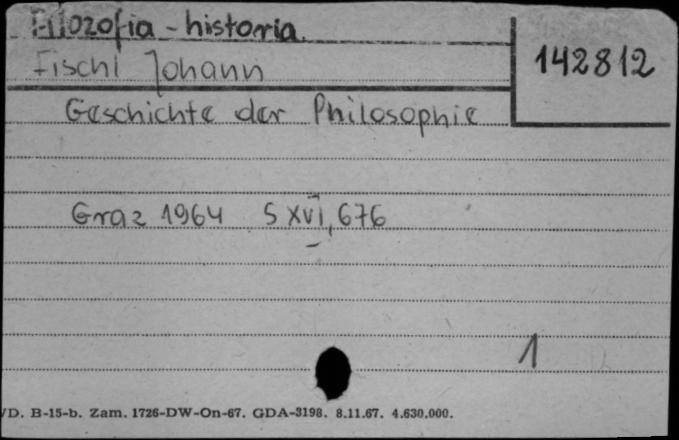 Filozofia - historia.
Fischl Johann
142812
Geschichte der Philosophie
Graz 1964 S XVI, 676
1
/D. B-15-b. Zam. 1726-DW-On-67. GDA-3198. 8.11.67. 4.630.000.